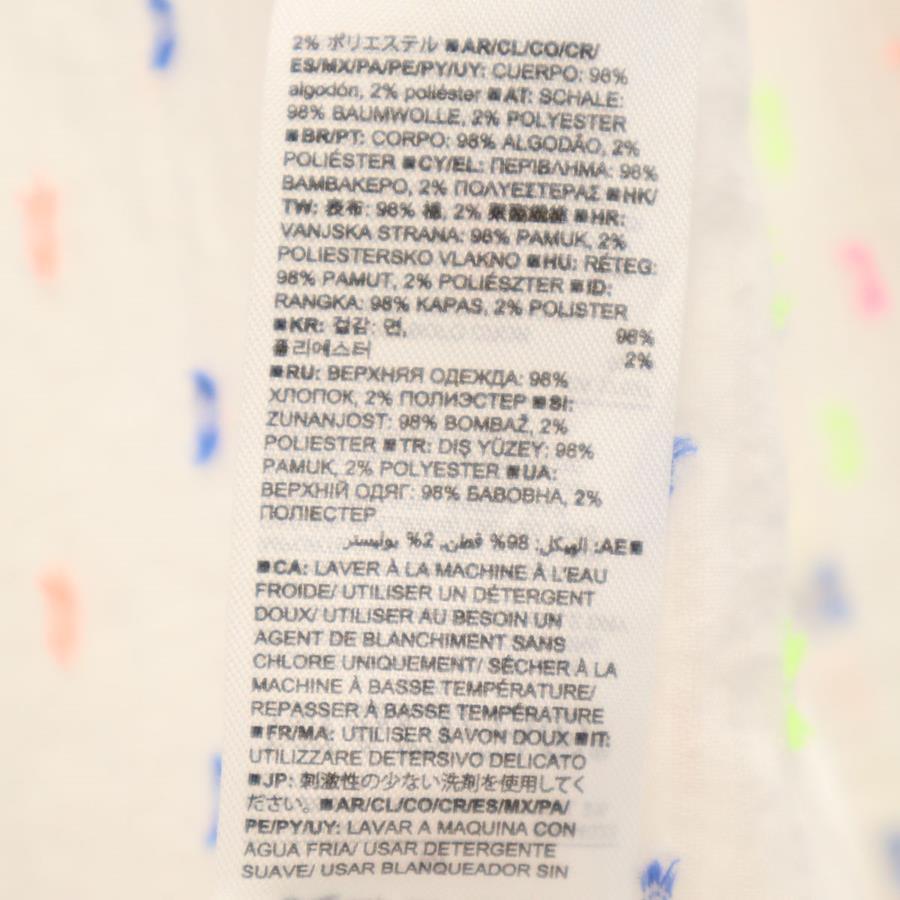 2% ポリエステル ■AR/CL/CO/CR/
ES/MX/PA/PE/PY/UY: CUERPO: 98%
algodón, 2% poliéster ■AT: SCHALE:
98% BAUMWOLLE, 2% POLYESTER
■BR/PT: CORPO: 98% ALGODÃO, 2%
POLIÉSTER ■CY/EL: ΠΕΡΙΒΛΗΜΑ: 98%
ΒΑΜΒΑΚΕΡΟ, 2% ΠΟΛΥΕΣΤΕΡΑΣ ■HK/
TW: 表布: 98% 棉, 2% 聚酯纖維 ■HR:
VANJSKA STRANA: 98% PAMUK, 2%
POLIESTERSKO VLAKNO ■HU: RÉTEG:
98% PAMUT, 2% POLIÉSZTER ■ID:
RANGKA: 98% KAPAS, 2% POLISTER
■KR: 겉감: 면, 98%
폴리에스터 2%
■RU: ВЕРХНЯЯ ОДЕЖДА: 98%
ХЛОПОК, 2% ПОЛИЭСТЕР ■SI:
ZUNANJOST: 98% BOMBAŽ, 2%
POLIESTER ■TR: DIŞ YÜZEY: 98%
PAMUK, 2% POLYESTER ■UA:
ВЕРХНІЙ ОДЯГ: 98% БАВОВНА, 2%
ПОЛІЕСТЕР
■AE: الهيكل: 98% قطن, 2% بوليستر
■CA: LAVER À LA MACHINE À L'EAU
FROIDE/ UTILISER UN DÉTERGENT
DOUX/ UTILISER AU BESOIN UN
AGENT DE BLANCHIMENT SANS
CHLORE UNIQUEMENT/ SÉCHER À LA
MACHINE À BASSE TEMPÉRATURE/
REPASSER À BASSE TEMPÉRATURE
■FR/MA: UTILISER SAVON DOUX ■IT:
UTILIZZARE DETERSIVO DELICATO
■JP: 刺激性の少ない洗剤を使用してく
ださい。■AR/CL/CO/CR/ES/MX/PA/
PE/PY/UY: LAVAR A MAQUINA CON
AGUA FRIA/ USAR DETERGENTE
SUAVE/ USAR BLANQUEADOR SIN